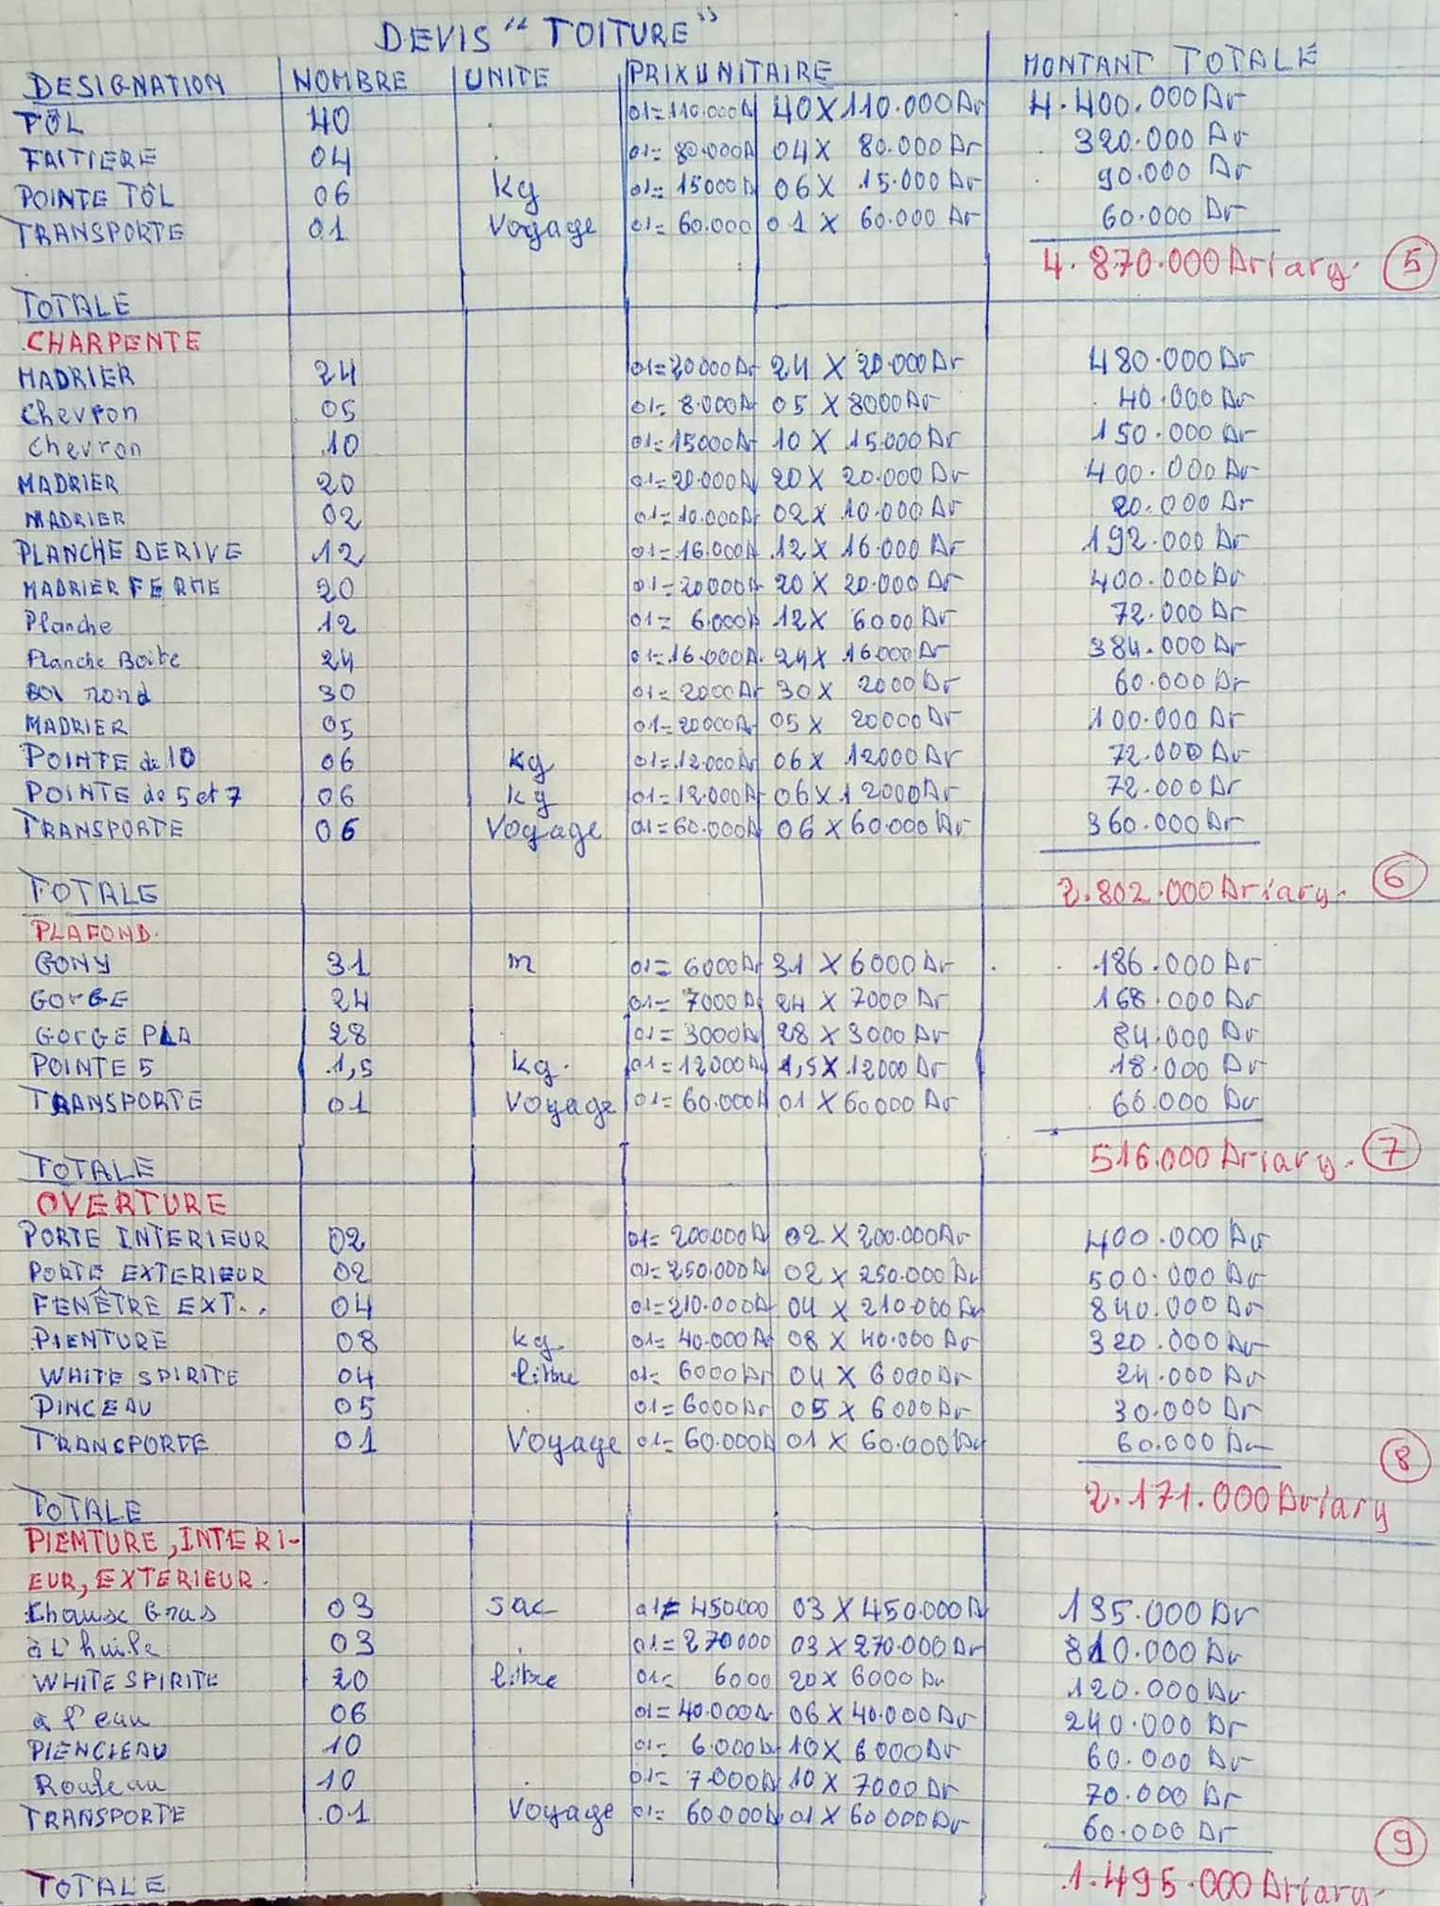 DEVIS "TOITURE"
DESIGNATION NOMBRE UNITE PRIX UNITAIRE MONTANT TOTALE
TÔL 40 01=110.000Ar 40X110.000Ar 4.400.000Ar
FAITIERE 04 01=80.000Ar 04X 80.000Ar 320.000 Ar
POINTE TÔL 06 kg 01=15000Ar 06X 15.000Ar 90.000 Ar
TRANSPORTE 01 Voyage 01=60.000 01X 60.000Ar 60.000 Ar
4.870.000 Ariary. 5
TOTALE
CHARPENTE
MADRIER 24 01=20000Ar 24 X 20.000Ar 480.000Ar
Chevron 05 01=8.000Ar 05 X 8000Ar 40.000Ar
Chevron 10 01=15000Ar 10 X 15.000Ar 150.000Ar
MADRIER 20 01=20.000Ar 20X 20.000Ar 400.000Ar
MADRIER 02 01=10.000Ar 02X 10.000Ar 20.000Ar
PLANCHE DERIVE 12 01=16.000Ar 12X 16.000Ar 192.000Ar
MADRIER FERME 20 01=20000Ar 20X 20.000Ar 400.000Ar
Planche 12 01= 6.000Ar 12X 6000Ar 72.000Ar
Planche Boite 24 01=16.000Ar 24X 16000Ar 384.000Ar
BOI rond 30 01=2000Ar 30X 2000Ar 60.000Ar
MADRIER 05 01=20000Ar 05X 20000Ar 100.000Ar
POINTE de 10 06 kg 01=12.000Ar 06X 12000Ar 72.000Ar
POINTE de 5 et 7 06 kg 01=12.000Ar 06X12000Ar 72.000Ar
TRANSPORTE 06 Voyage 01=60.000Ar 06X60.000Ar 360.000Ar
TOTALE 2.802.000 Ariary. 6
PLAFOND.
GONY 31 m 01= 6000Ar 31X6000Ar 186.000Ar
GORGE 24 01= 7000Ar 24X 7000Ar 168.000Ar
GORGE PLA 28 01= 3000Ar 28X3000Ar 84.000Ar
POINTE 5 1,5 kg. 01=12000Ar 1,5X12000Ar 18.000Ar
TRANSPORTE 01 Voyage 01=60.000Ar 01X60000Ar 60.000Ar
TOTALE 516.000 Ariary. 7
OVERTURE
PORTE INTERIEUR 02 01=200.000Ar 02X200.000Ar 400.000Ar
PORTE EXTERIEUR 02 01=250.000Ar 02X250.000Ar 500.000Ar
FENÊTRE EXT.. 04 01=210.000Ar 04X210.000Ar 840.000Ar
PIENTURE 08 kg 01=40.000Ar 08X40.000Ar 320.000Ar
WHITE SPIRITE 04 litre 01= 6000Ar 04X6000Ar 24.000Ar
PINCEAU 05 01=6000Ar 05X6000Ar 30.000Ar
TRANSPORTE 01 Voyage 01=60.000Ar 01X60.000Ar 60.000Ar
8
TOTALE 2.171.000 Ariary
PIEMTURE, INTERI-
EUR, EXTERIEUR.
Chaux Gras 03 sac 01=450000 03X450.000Ar 135.000Ar
à L'huile 03 01=270000 03X270.000Ar 810.000Ar
WHITE SPIRITE 20 litre 01= 6000 20X6000Ar 120.000Ar
a l'eau 06 01=40.000Ar 06X40.000Ar 240.000Ar
PIENCIEAU 10 01= 6.000Ar 10X6000Ar 60.000Ar
Rouleau 10 01= 7.000Ar 10X7000Ar 70.000Ar
TRANSPORTE 01 Voyage 01=60000Ar 01X60000Ar 60.000Ar
9
TOTALE 1.495.000 Ariary.